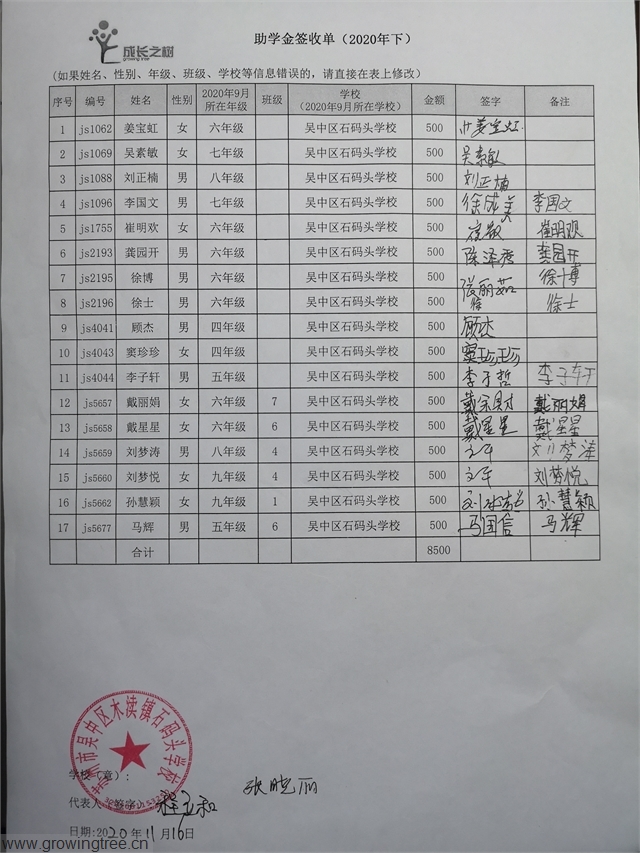 成长之树
growing tree
助学金签收单（2020年下）
(如果姓名、性别、年级、班级、学校等信息错误的，请直接在表上修改)
序号 编号 姓名 性别 2020年9月所在年级 班级 学校（2020年9月所在学校） 金额 签字 备注
1 js1062 姜宝虹 女 六年级 吴中区石码头学校 500 姜宝虹
2 js1069 吴素敏 女 七年级 吴中区石码头学校 500 吴素敏
3 js1088 刘正楠 男 八年级 吴中区石码头学校 500 刘正楠
4 js1096 李国文 男 七年级 吴中区石码头学校 500 徐成美 李国文
5 js1755 崔明欢 女 六年级 吴中区石码头学校 500 崔明欢
6 js2193 龚园开 男 六年级 吴中区石码头学校 500 龚园开
7 js2195 徐博 男 六年级 吴中区石码头学校 500 张丽茹 徐博
8 js2196 徐士 男 六年级 吴中区石码头学校 500 徐士
9 js4041 顾杰 男 四年级 吴中区石码头学校 500 顾杰
10 js4043 窦珍珍 女 四年级 吴中区石码头学校 500 窦珍珍
11 js4044 李子轩 男 五年级 吴中区石码头学校 500 李子哲 李子轩
12 js5657 戴丽娟 女 六年级 7 吴中区石码头学校 500 戴丽娟
13 js5658 戴星星 女 六年级 6 吴中区石码头学校 500 戴星星 戴星星
14 js5659 刘梦涛 男 八年级 4 吴中区石码头学校 500 刘梦涛
15 js5660 刘梦悦 女 九年级 4 吴中区石码头学校 500 刘梦悦
16 js5662 孙慧颖 女 九年级 1 吴中区石码头学校 500 孙慧颖
17 js5677 马辉 男 五年级 6 吴中区石码头学校 500 马国信 马辉
合计 8500
苏州市吴中区木渎镇石码头学校
学校（章）：
张晓丽
代表人（签字）：
日期:2020年11月16日
www.growingtree.cn